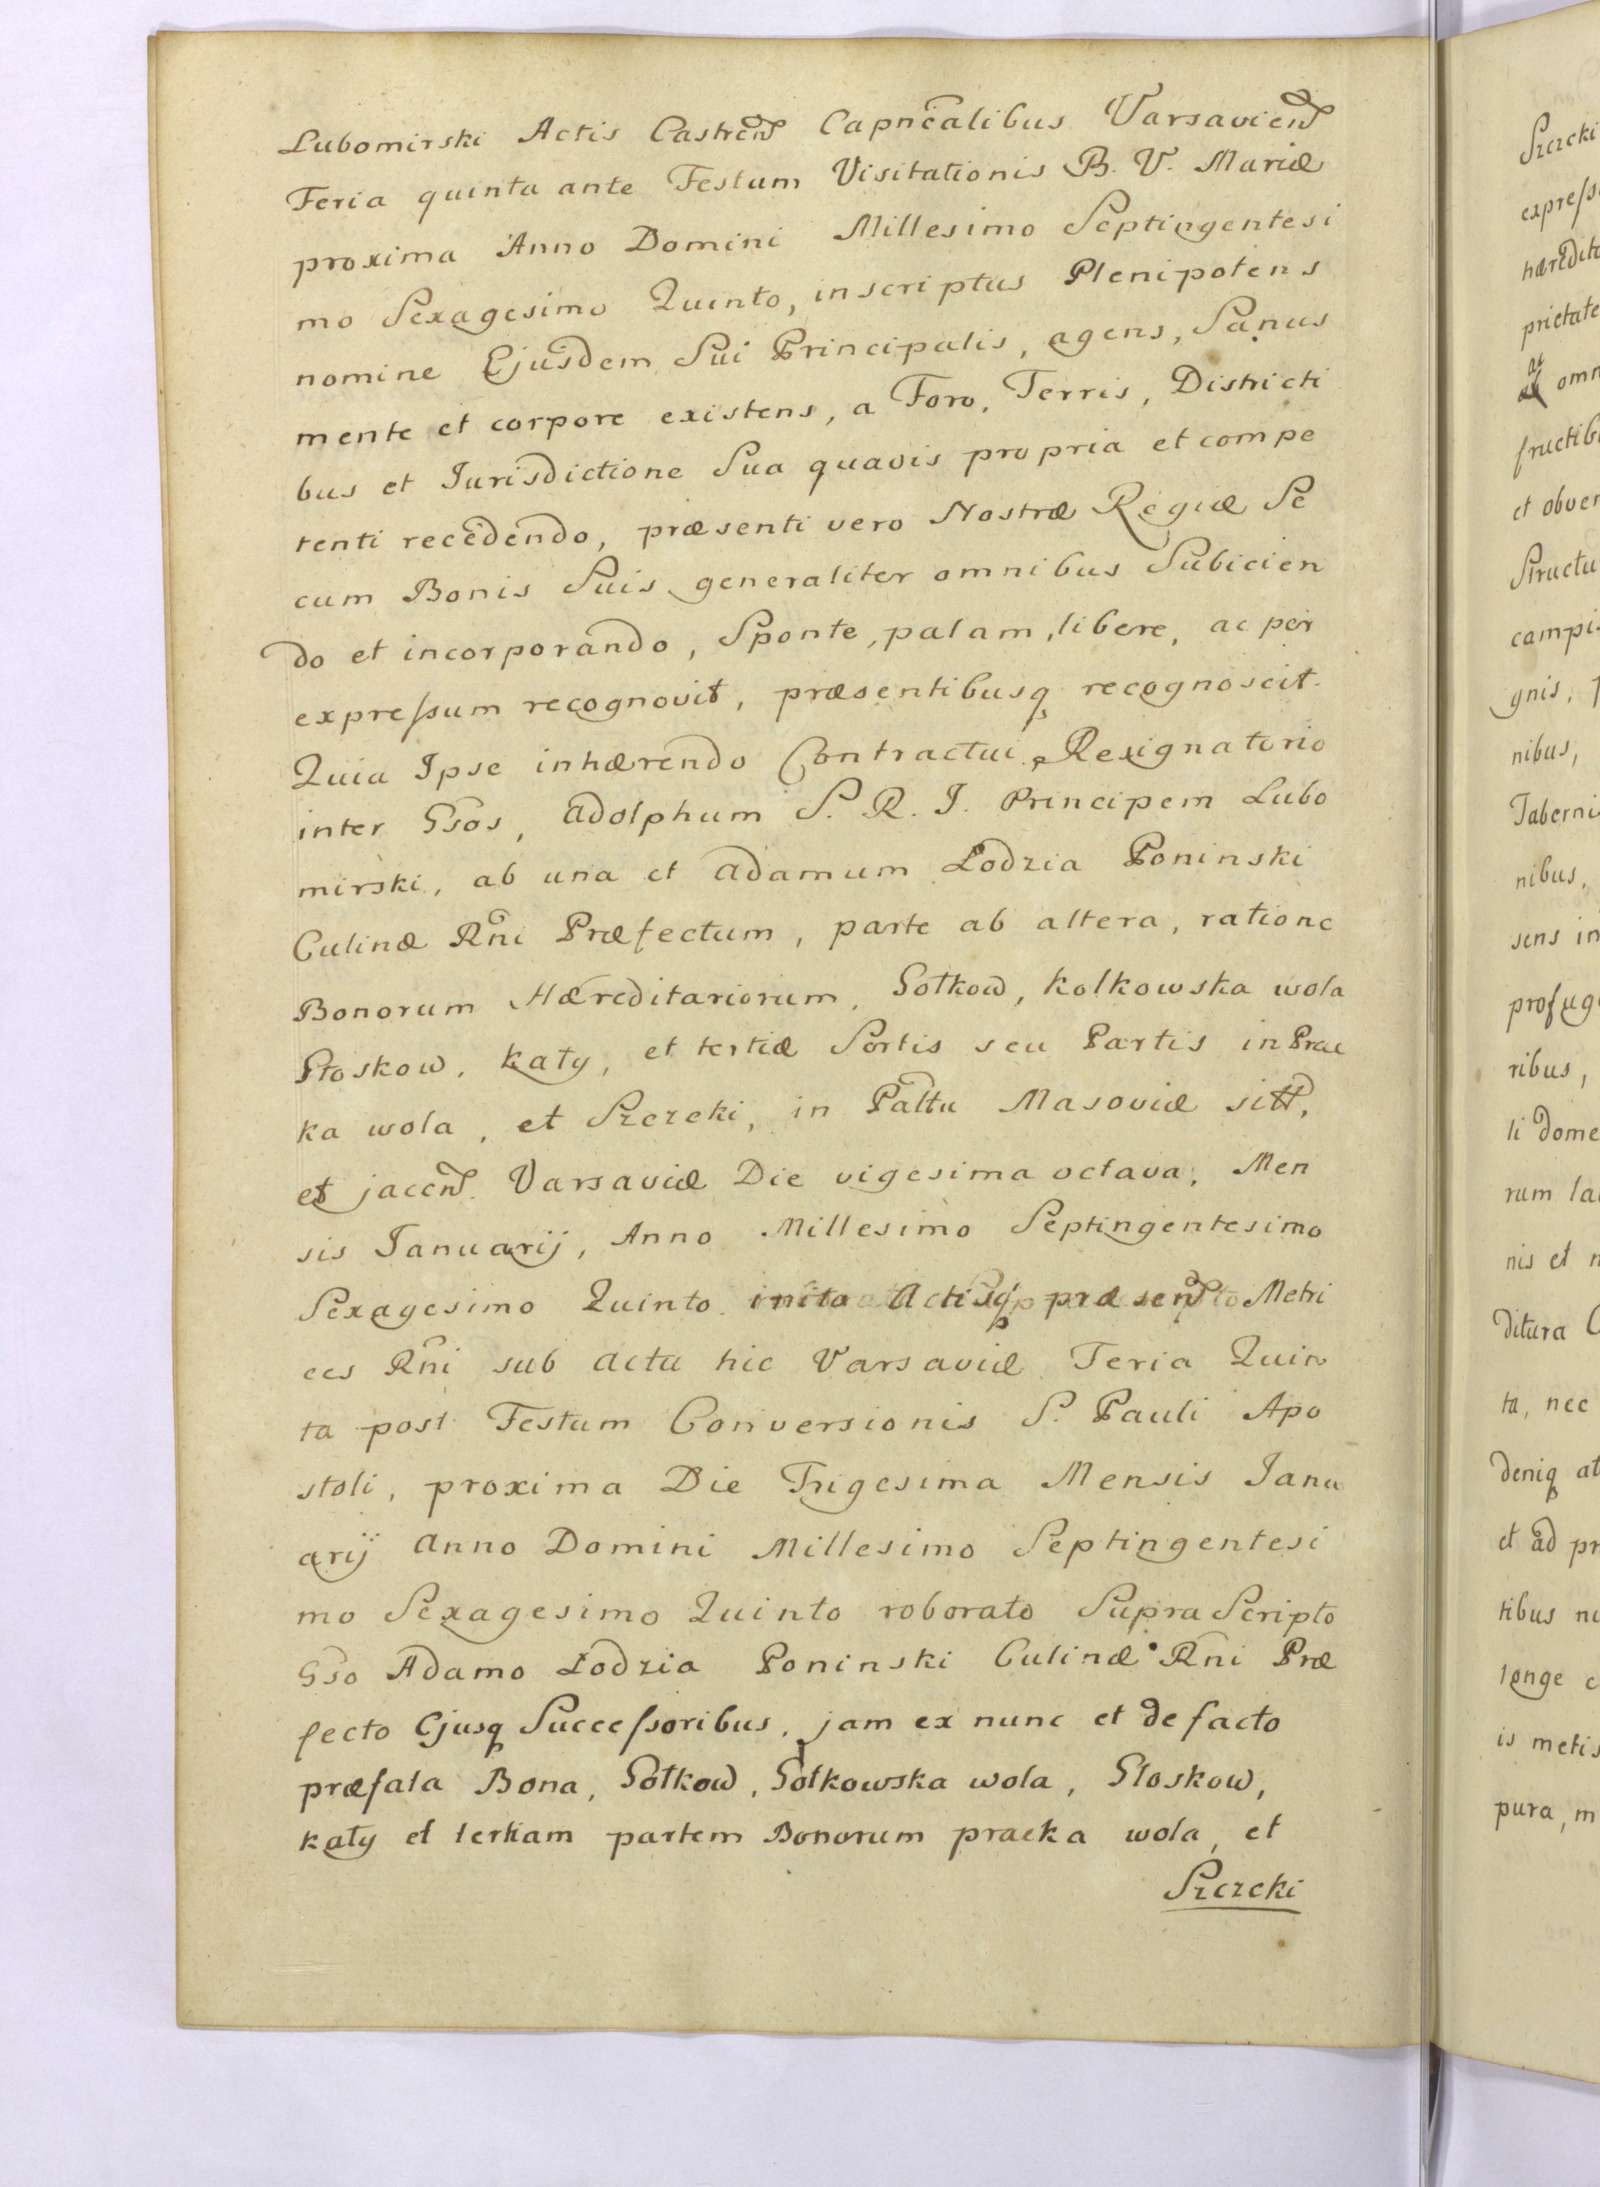 Lubomirski Actis Castren Capnealibus Varsavien
Feria quinta ante Festum Visitationis B. V. Mariæ
proxima Anno Domini Millesimo Septingentesi
mo Sexagesimo Quinto, inscriptus Plenipotens
nomine Ejusdem Sui Principalis, agens, Sanus
mente et corpore existens, a Foro, Terris, Districti
bus et Jurisdictione Sua quavis propria et compe
tenti recedendo, præsenti vero Nostræ Regiæ Se
cum Bonis Suis generaliter omnibus Subicien
do et incorporando, Sponte, palam, libere, ac per
expreſsum recognovit, præsentibusq recognoscit.
Quia Ipse inhærendo Contractui Resignatorio
inter Gsos, Adolphum S. R. I. Principem Lubo
mirski, ab una et Adamum Łodzia Poninski
Culinæ Rni Præfectum, parte ab altera, ratione
Bonorum Hæreditariorum, Gołkow, Kolkowska wola
Głoskow, Katy, et tertiæ Sortis seu Partis in Prac
ka wola, et Szczeki, in Pałtu Masoviæ sitt,
et jacen. Varsaviæ Die vigesima octava, Men
sis Januarij, Anno Millesimo Septingentesimo
Sexagesimo Quinto inito Actisq præsen Metri
ces Rni sub Actu hic Varsaviæ Feria Quin
ta post Festum Conversionis S. Pauli Apo
stoli, proxima Die Trigesima Mensis Janu
arij Anno Domini Millesimo Septingentesi
mo Sexagesimo Quinto roborato Supra Scripto
Gso Adamo Łodzia Poninski Culinæ Rni Præ
fecto Ejusq Succeſsoribus, jam ex nunc et de facto
præfata Bona, Gołkow, Gołkowska wola, Głoskow,
Katy et tertiam partem Bonorum pracka wola, et
Szczeki
Szczeki
expreſs
hæredit
prietate
at omn
fructib
et obven
Structu
campi
gnis,
nibus,
Taberni
nibus,
sens in
profug
ribus,
li dome
rum la
nis et n
ditura C
ta, nec
deniq at
et ad pr
tibus n
longe c
is metis
pura, m